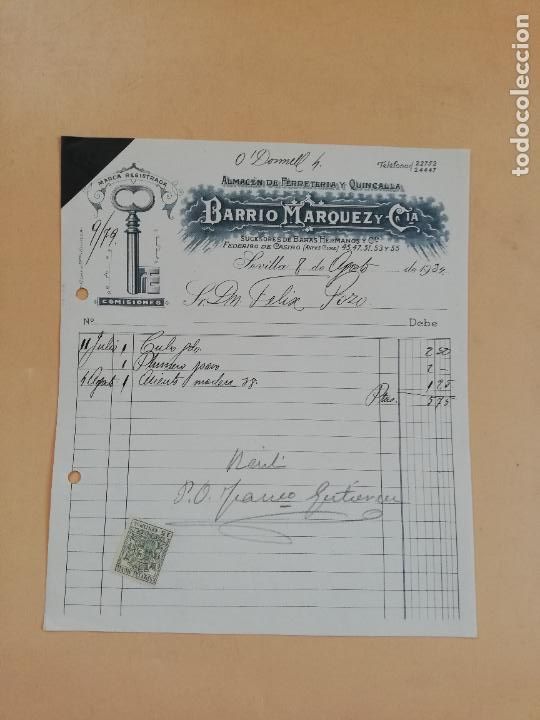 O'Donnell 4.
Teléfonos 22752
24447
MARCA REGISTRADA
ALMACÉN DE FERRETERIA Y QUINCALLA
BARRIO MARQUEZ Y CIA
SUCESORES DE BARAS HERMANOS Y Cª
FEDERICO DE CASTRO 45, 47, 51, 53 Y 55
9/79
COMISIONES
Sevilla 8 de Agosto de 1934
Sr. Dn. Felix
Nº Debe
11 Julio 1 Cubo 2 50
1 Plumero 2 —
4 Agosto 1 Asiento madera 38 1 25
Ptas. 5 75
Recibí
P.O. Franco Gutierrez
todocoleccion.net